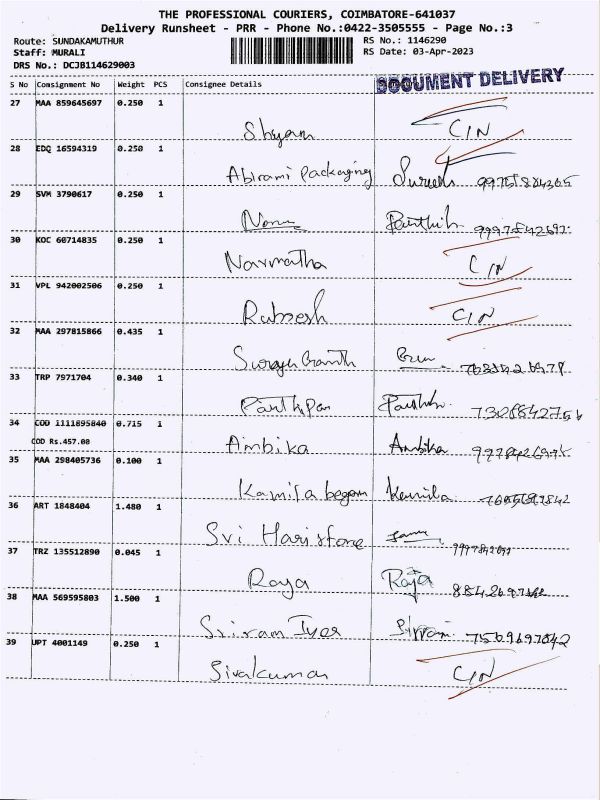 THE PROFESSIONAL COURIERS, COIMBATORE-641037
Delivery Runsheet - PRR - Phone No.:0422-3505555 - Page No.:3
Route: SUNDAKAMUTHUR RS No.: 1146290
Staff: MURALI RS Date: 03-Apr-2023
DRS No.: DCJB114629003
S No Consignment No Weight PCS Consignee Details DOCUMENT DELIVERY
27 MAA 859645697 0.250 1
Shyam C/N
28 EDQ 16594319 0.250 1
Abirami Packaging Suresh
29 SVM 3790617 0.250 1
Parthib
30 KOC 60714835 0.250 1
Navmatha C/N
31 VPL 942002506 0.250 1
Rabsesh C/N
32 MAA 297815866 0.435 1
33 TRP 7971704 0.340 1
34 COD 1111895840 0.715 1
COD Rs.457.00
Ambika Ambika
35 MAA 298405736 0.100 1
Kamila begam Kamila
36 ART 1848404 1.480 1
Sri Hari store
37 TRZ 135512890 0.045 1
Raja Raja
38 MAA 569595803 1.500 1
Sriram Iyer Sriram
39 UPT 4001149 0.250 1
Sivakumar C/N